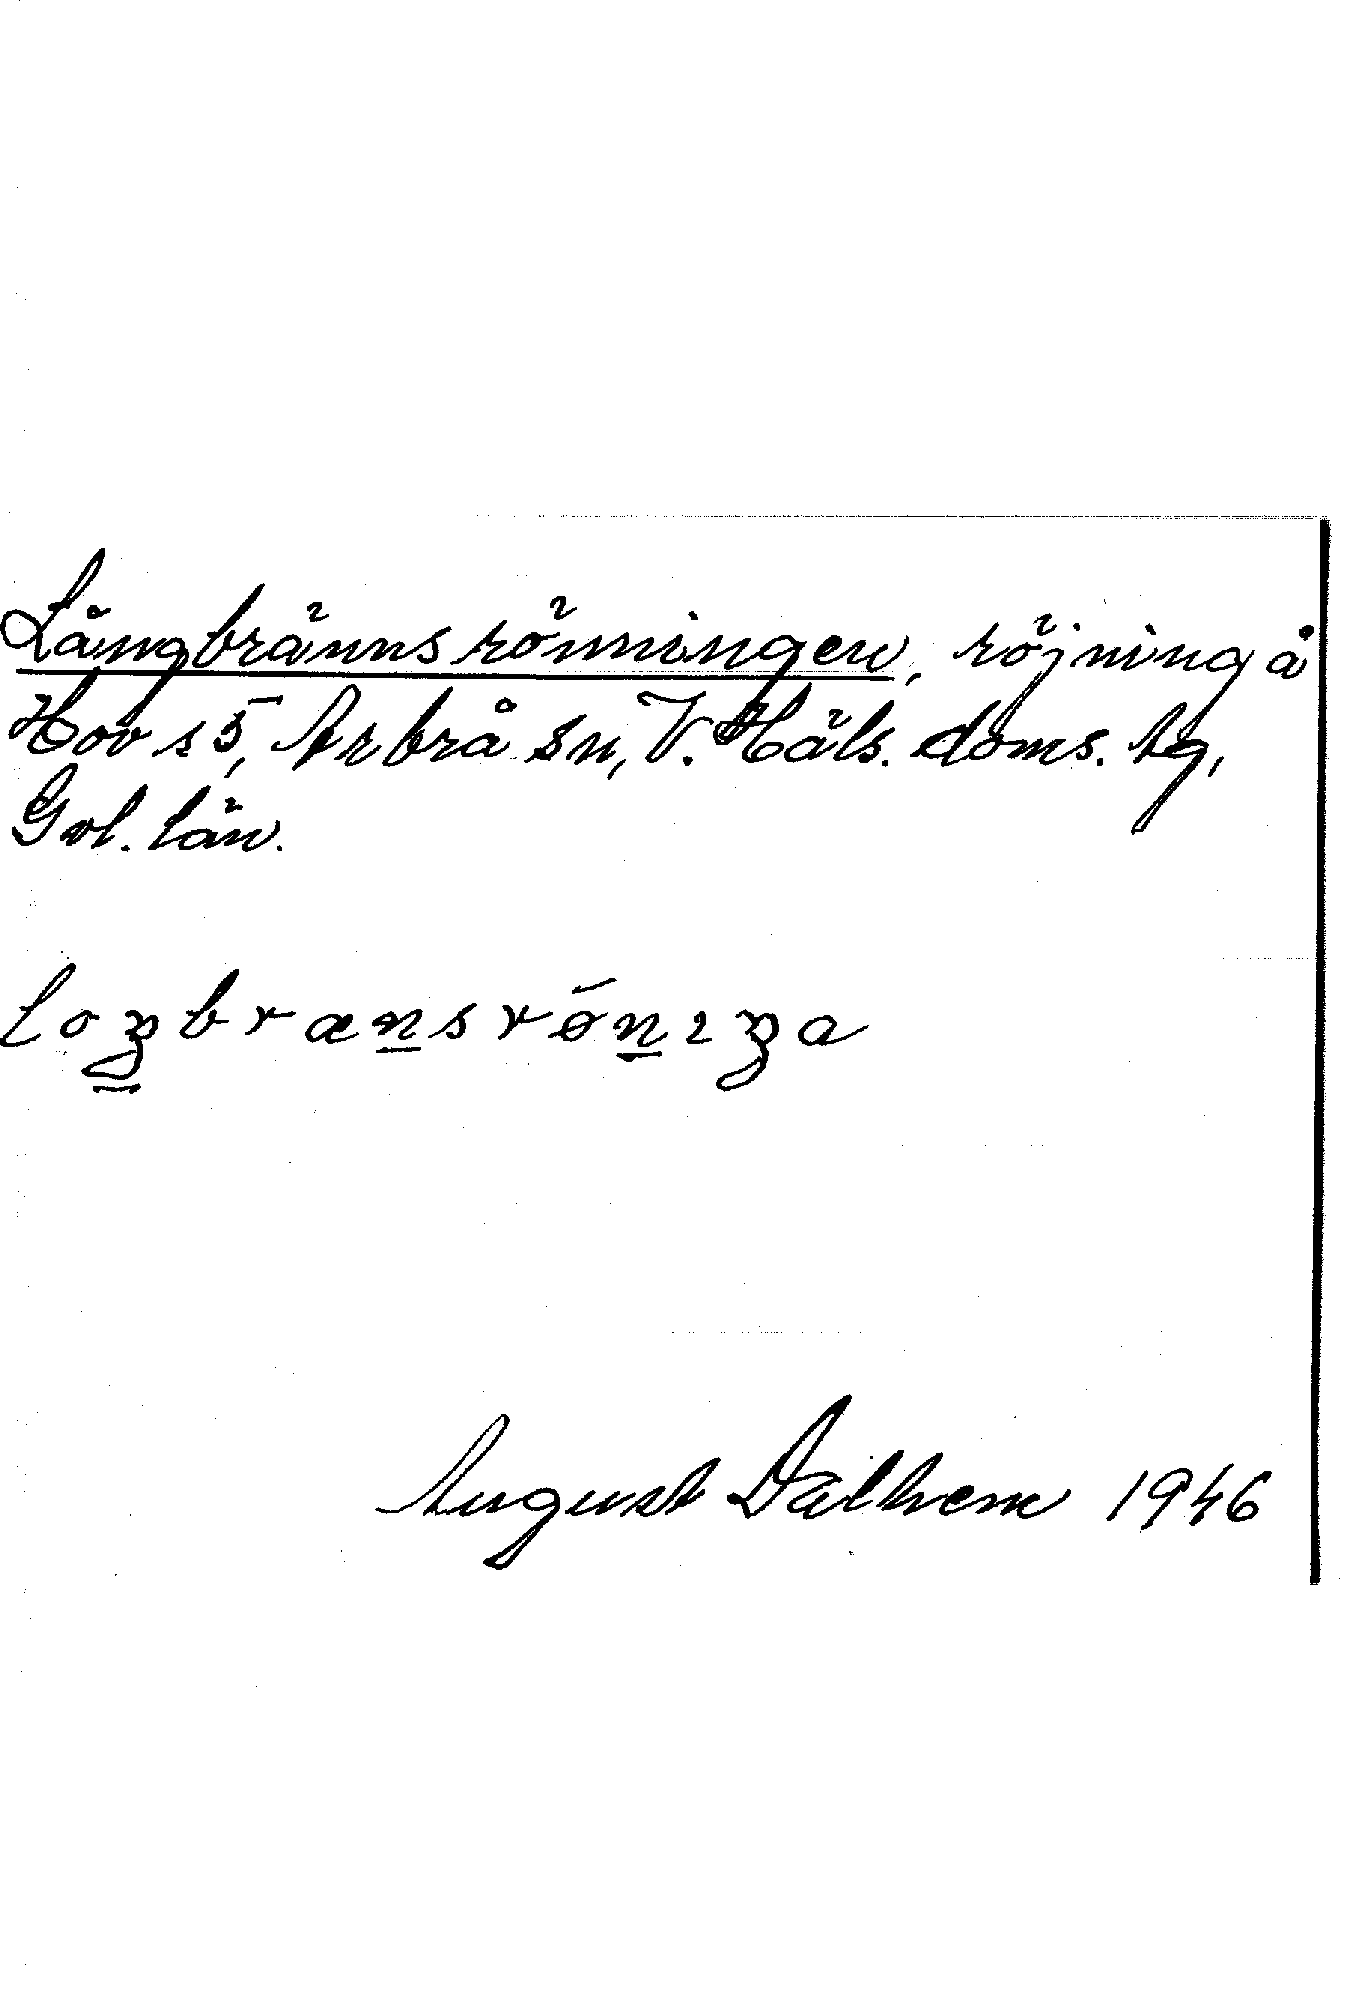 Långbrännsrönningen, röjning å
Hov s 5, Arbrå sn, V. Häls. doms. tg,
Gvl. län.
loŋbrænsrǿnıŋa
August Dalhem 1946